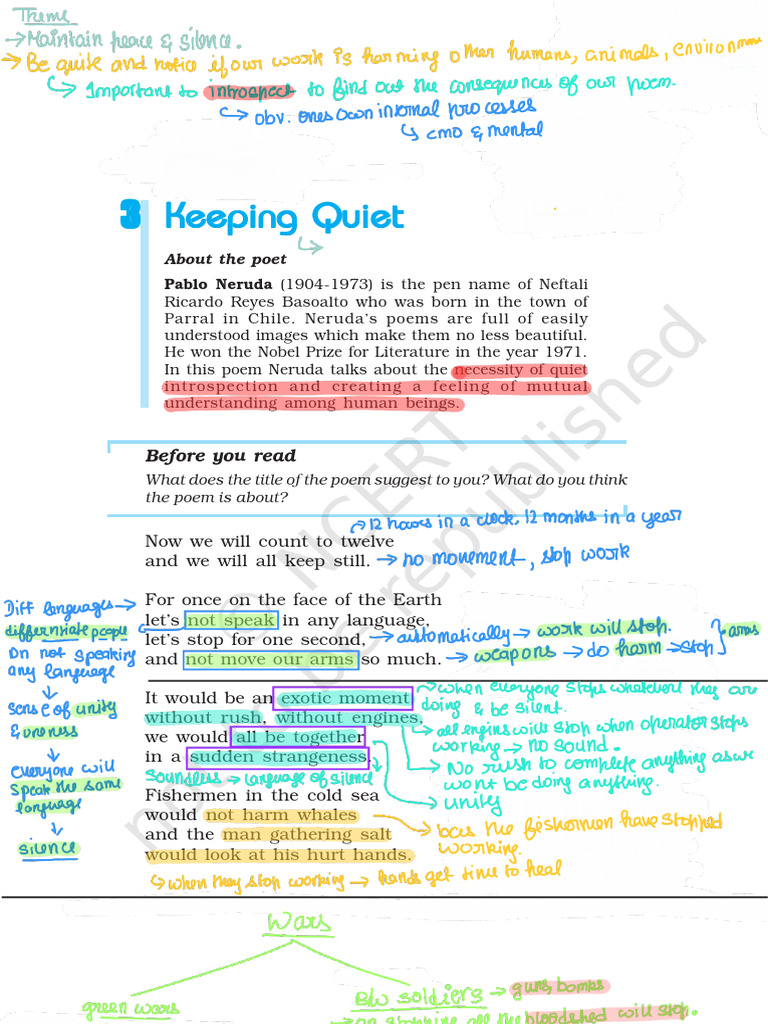 Theme
→ Maintain peace & silence.
→ Be quite and notice if our work is harming other humans, animals, environment
↳ Important to introspect to find out the consequences of our poem.
↳ obv. ones own internal processes
↳ emo & mental
3 Keeping Quiet
About the poet
Pablo Neruda (1904-1973) is the pen name of Neftali
Ricardo Reyes Basoalto who was born in the town of
Parral in Chile. Neruda's poems are full of easily
understood images which make them no less beautiful.
He won the Nobel Prize for Literature in the year 1971.
In this poem Neruda talks about the necessity of quiet
introspection and creating a feeling of mutual
understanding among human beings.
Before you read
What does the title of the poem suggest to you? What do you think
the poem is about?
→ 12 hours in a clock, 12 months in a year
Now we will count to twelve
and we will all keep still. → no movement, stop work
For once on the face of the Earth
let's not speak in any language,
let's stop for one second, → automatically → work will stop. } arms
and not move our arms so much. → weapons → do harm → stop
Diff languages →
differentiate people
On not speaking
any language
↓
sense of unity
& oneness
↓
everyone will
speak the same
language
↓
silence
It would be an exotic moment
without rush, without engines,
we would all be together
in a sudden strangeness.
Soundless → language of silence
→ when everyone stops whatever they are
doing & be silent.
→ all engines will stop when operator stops
working → no sound.
→ No rush to complete anything as we
wont be doing anything.
→ unity
Fishermen in the cold sea
would not harm whales
and the man gathering salt
would look at his hurt hands.
→ bcz the fishermen have stopped
working.
↳ when they stop working → hands get time to heal
Wars
green wars
b/w soldiers → guns, bombs
→ on stopping all the bloodshed will stop.
© NCERT
not to be republished